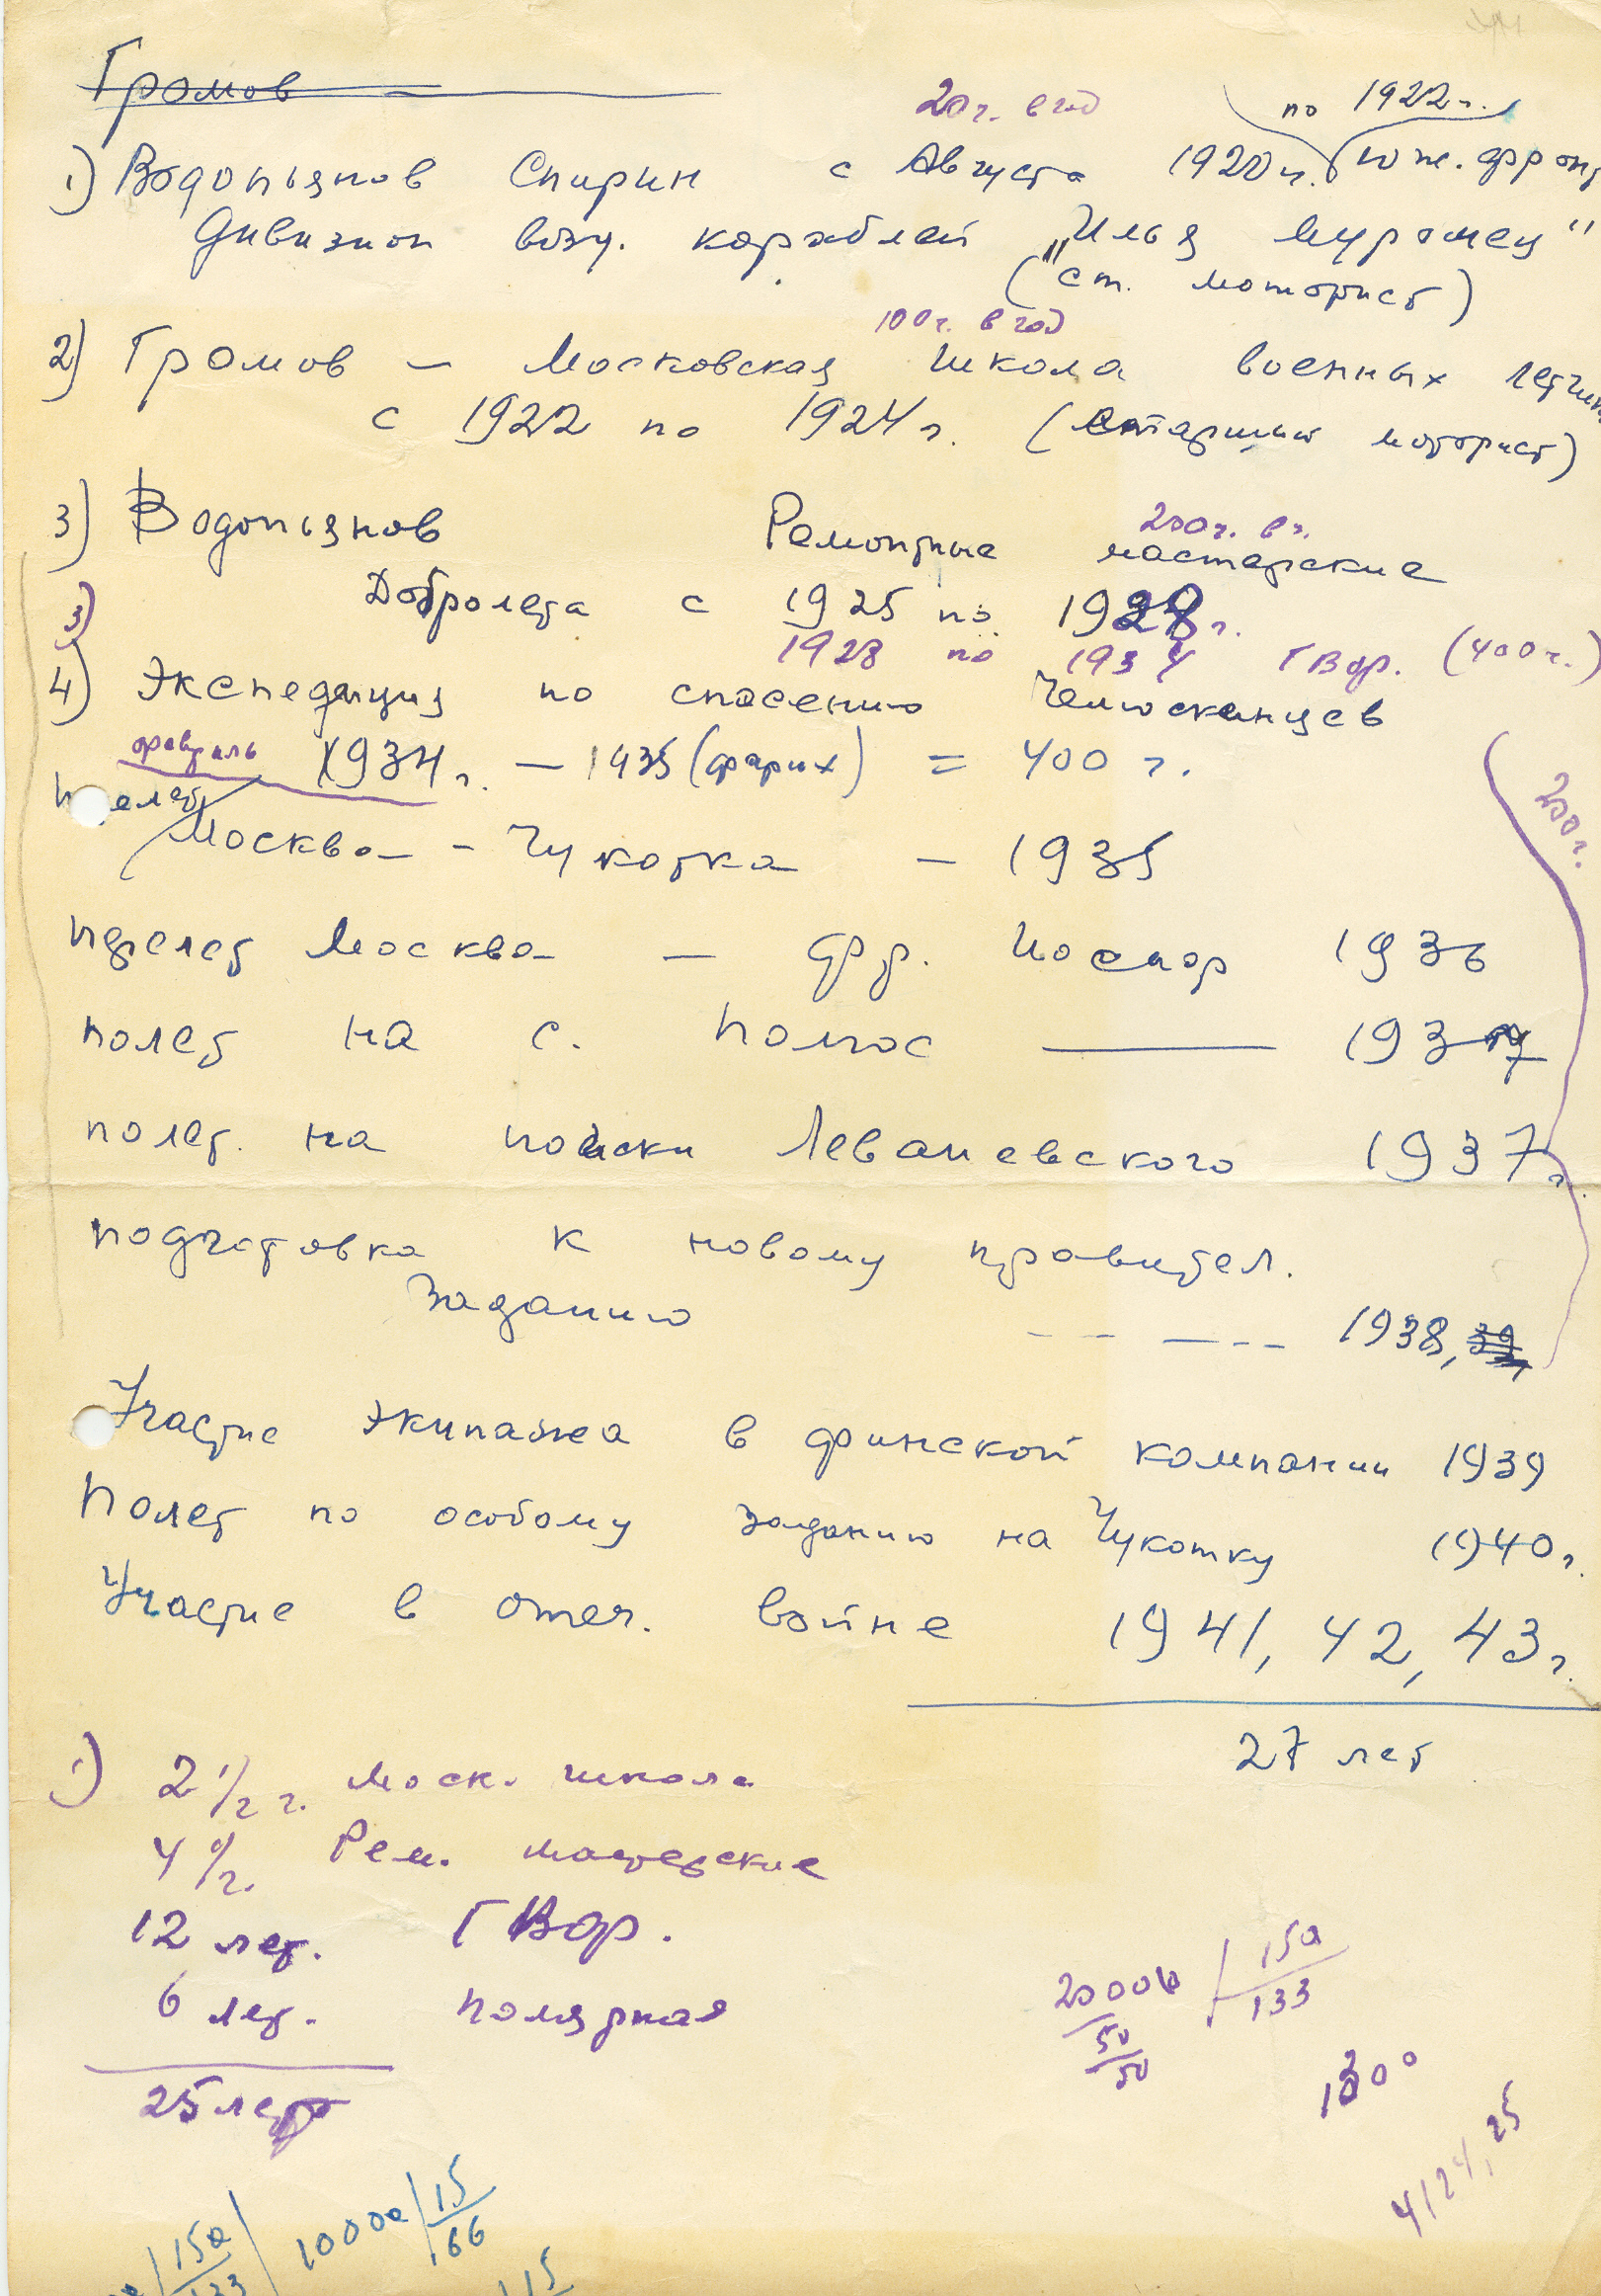 Громов
20 ч. в год
по 1922 г.
1) Водопьянов Спирин с Августа 1920 г. юж. фронт
Дивизион возд. кораблей „Илья Муромец"
(ст. моторист)
100 ч. в год
2) Громов – Московская школа военных летчик
с 1922 по 1924 г. (старший моторист)
200 ч. в г.
3) Водопьянов Ремонтные мастерские
Добролета с 1925 по 1928 г.
3) 1928 по 1934 ГВФ. (400 ч.)
4) Экспедиция по спасению Челюскинцев
февраль 1934 г. – 1935 (фарих) = 400 г.
Москва – Чукотка – 1935
200 г.
перелет Москва – ф. р. Иосиф 1936
полет на с. полюс —— 1937
полет. на поиски Леваневского 1937 г.
подготовка к новому правител.
заданию – – — – – 1938, 39,
Участие экипажа в финской компании 1939
Полет по особому заданию на Чукотку 1940 г.
Участие в отеч. войне 1941, 42, 43 г.
27 лет
1) 2 1/2 г. Моск. школа
4 г. Рем. мастерские
12 лет. ГВФ.
6 лет. полярная
25 лет
20000 150
50 133
50
1300
4124,25
150 10000 15
133 166
15